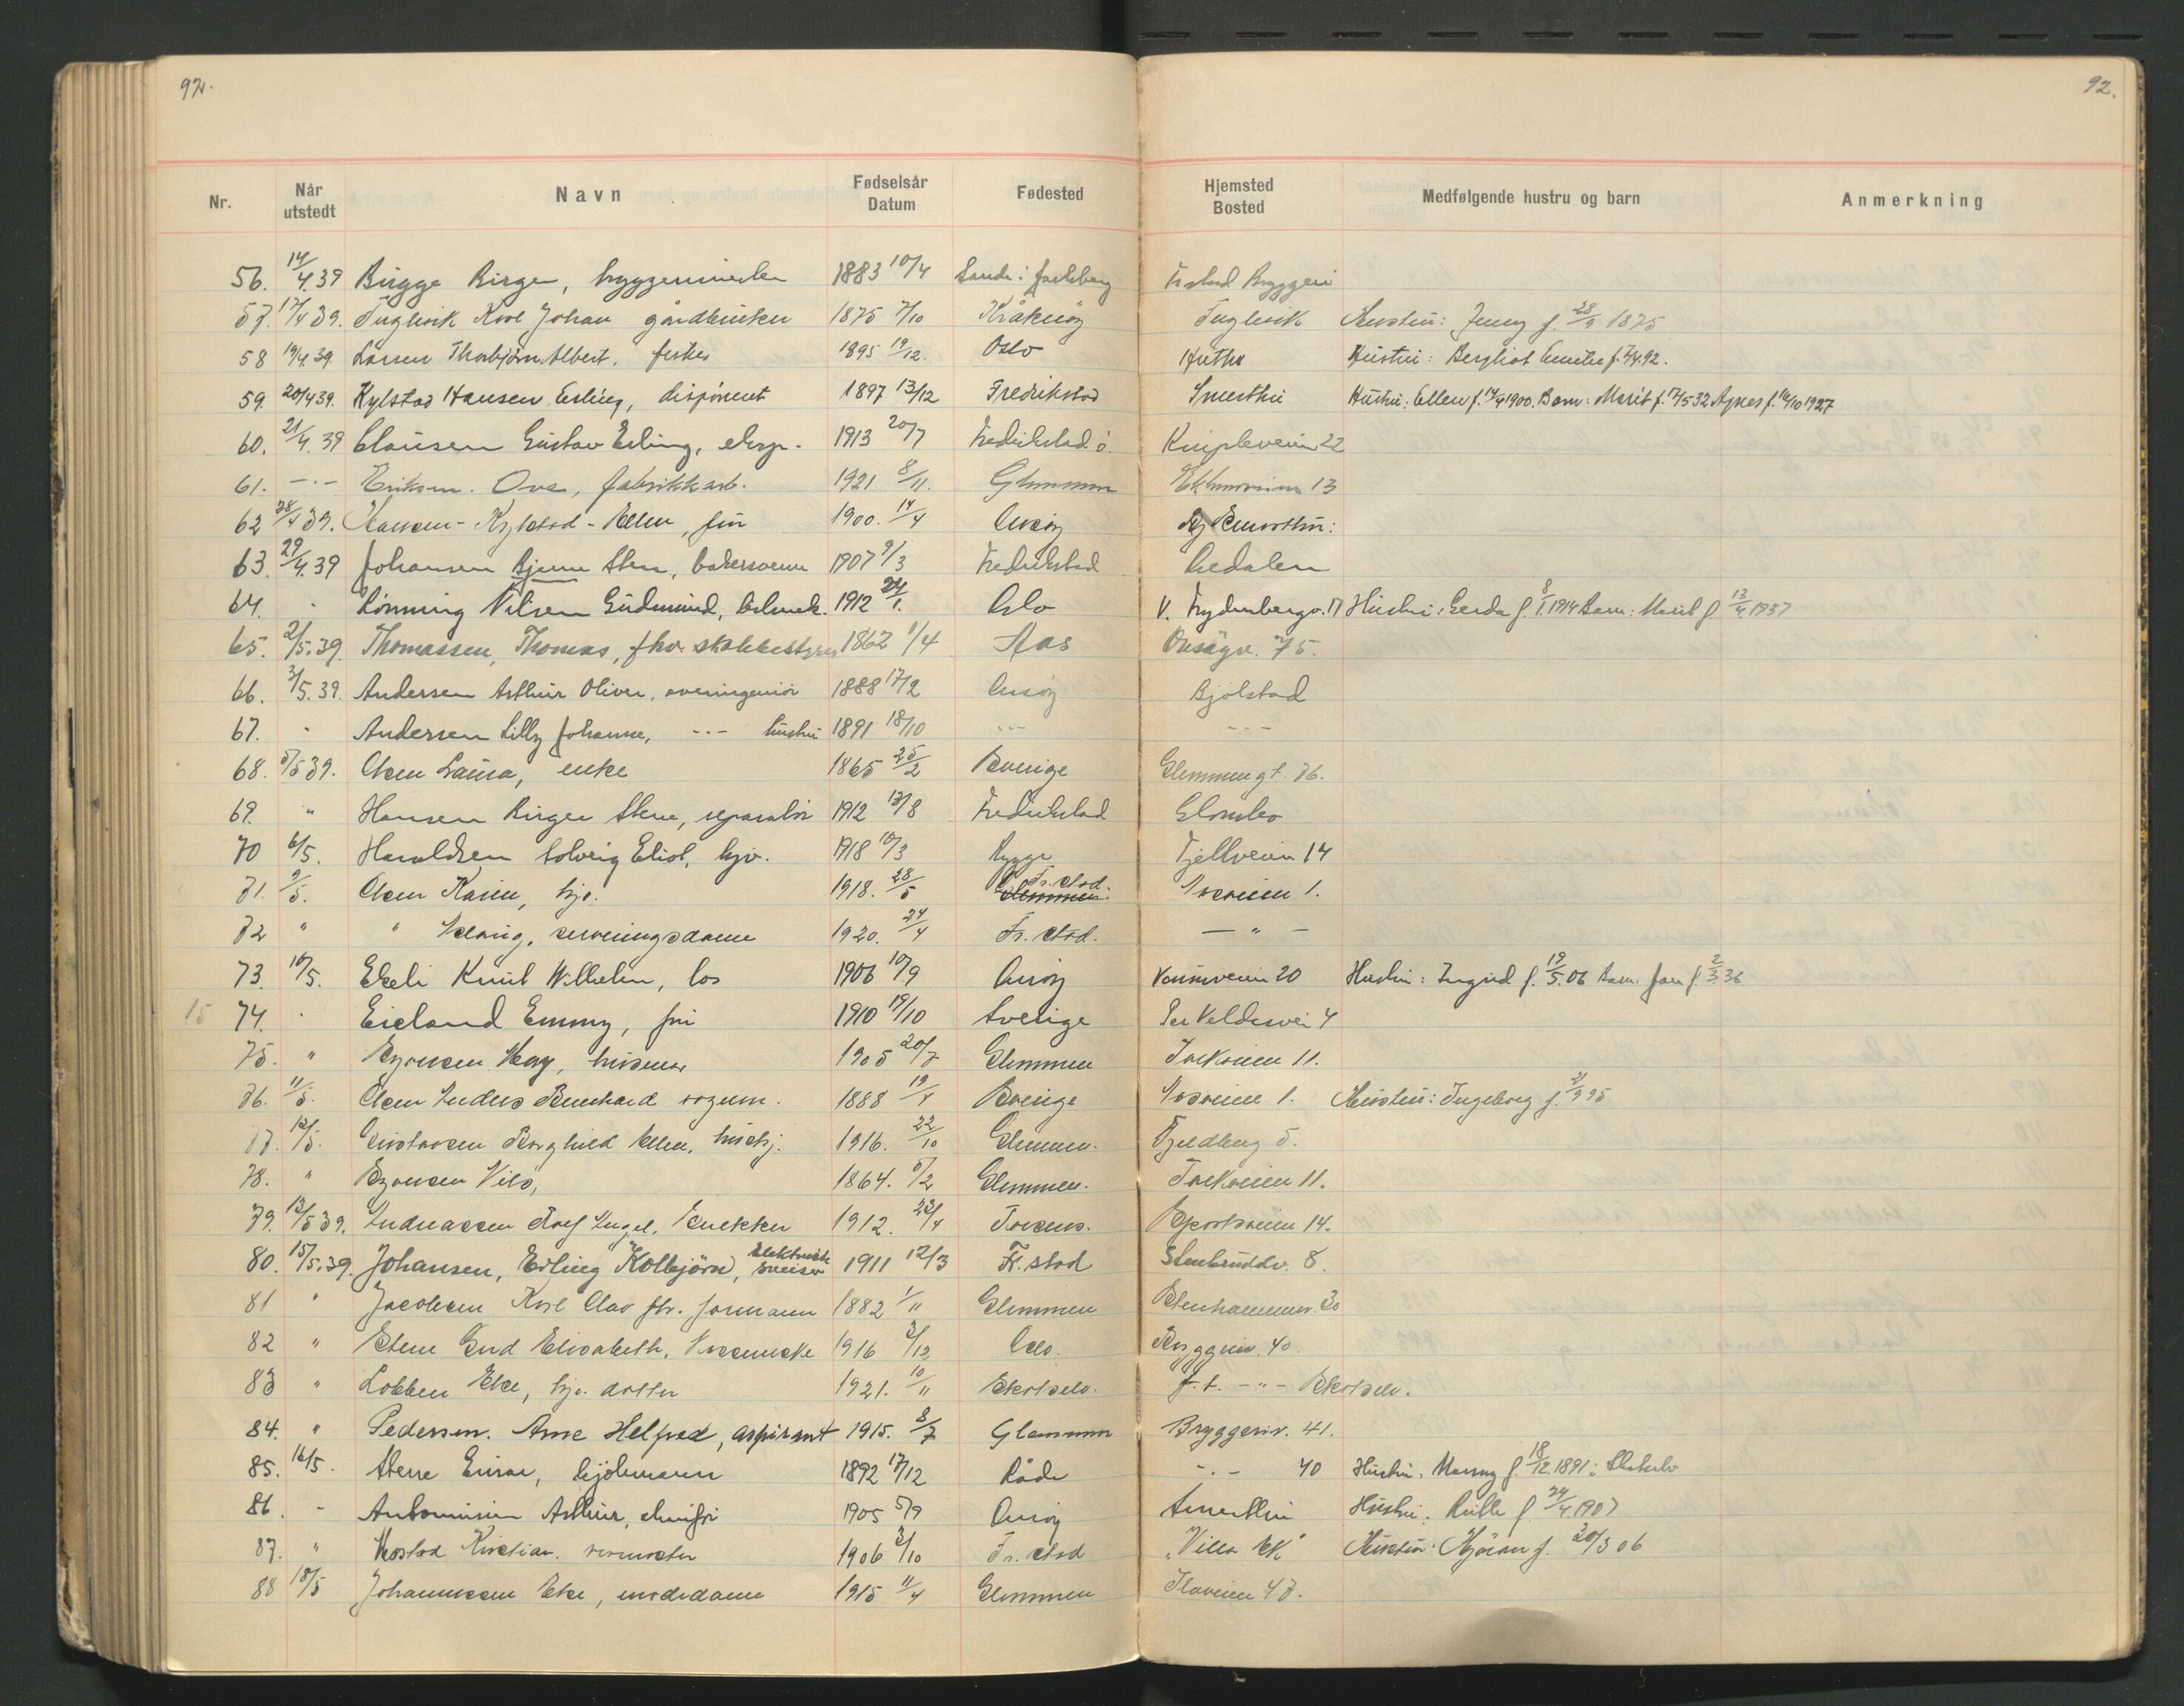 92.
92.
Nr. Når utstedt Navn Fødselsår Datum Fødested Hjemsted Bosted Medfølgende hustru og barn Anmerkning
56. 14/4.39 Bugge Birger, bryggerimester 1883 10/4 Sande i Jarlsberg Fr.stad Bryggeri
57. 17/4 39. Fuglevik Karl Johan gårdbruker 1875 7/10 Kråkerøy Fuglevik Hustru: Jenny f. 28/9 1875
58 19/4.39. Larsen Thorbjørn Albert, fisker 1895 19/12. Oslo Hustru: Bergliot Emilie f. 7/4.92.
59. 20/4 39. Kylstad Hansen Erling, disponent 1897 13/12 Fredrikstad Smerthu Hustru: Ellen f. 14/4 1900. Barn: Marit f. 17/5 32 Agnes f. 14/10 1927
60. 21/4.39 Clausen Gustav Erling, eksp. 1913 20/7 Fredrikstad ö. Knipleveien 22
61. -·- Eriksen. Ove, fabrikkarb. 1921 8/11. Glemmen 13
62 28/4 39. Hansen-Kylstad-Ellen, frú 1900. 14/4 Onsøy Smerthu:
63. 29/4.39 Johansen Bjarne Sten, bakersvenn 1907 9/3 Fredrikstad Gudalen
64. " Lønning Nilsen Gudmund, 1912 24/1. Oslo V. Frydenbergv. 17 Hustru: Gerda f. 8/1.1914 Barn: Marit f. 13/4.1937
65. 2/5.39. Thomassen, Thomas, fhv. 1862 1/4 Aas Onsøyv. 75.
66. 3/5.39. Andersen Arthur Oliver, overingeniør 1888 17/2 Onsøy Bjølstad
67. " Andersen Lilly Johanne, --- hustru 1891 18/10 --- ---
68. 5/5 39. Olsen Laura, enke 1865 25/2 Sverige Glemmengt. 76.
69. " Hansen Birger Stene, reparatör 1912 13/8 Fredrikstad Glombo
70 6/5. Haraldsen Solveig Eliot, hjv. 1918 10/3 Rygge Fjellveien 14
71. 9/5. Olsen Karin, hjv. 1918. 28/5 Glemmen. Fr. stad. 1.
72 " " Aslaug, serveringsdame 1920. 24/4 Fr. stad. — " —
73. 10/5. Ekeli Knut Wilhelm, los 1906 10/9 Onsøy 20 Hustru: Ingrid f. 19/5.06 Barn: Jan f. 2/3 36
15 74. " Eieland Emmy, frú 1910 19/10 Sverige Per Veldesvei 4
75. " Syversen May, husmor 1905 20/7 Glemmen Torkveien 11.
76. 11/5. Olsen Anders Bernhard vognm. 1888 19/ Sverige 1. Hustru: Ingeborg f. 95
77. 12/5. Gustavsen Borghild Ellen, hushj. 1916. 22/10 Glemmen. Fjeldberg 5.
78. " Syversen Nils, 1864. 5/2 Glemmen. Torkveien 11.
79. 12/5 39. Andreassen Rolf Ingol. snekker 1912. 22/4 Torsnes. Sportsveien 14.
80. 15/5.39. Johansen, Erling Kolbjörn, Elektrisk sveiser 1911 12/3 Fr. stad Stenbruddv. 8.
81 " Jacobsen Karl Olav fhv. formann 1882 1/11 Glemmen Stenhammerv. 30
82 " Stene Gud Elisabeth, 1916 2/12 Oslo. Bryggeriv. 40
83 " Lobben Else, hjv. datter 1921. 10/11 Skotselv. f. t. - " - Skotselv.
84. " Pedersen. Arne Helfred, aspirant 1915. 8/7 Glemmen Bryggeriv. 41.
85. 16/5. Stene Einar, kjøbmann 1892 17/12 Råde -.- 40 Hustru: Massny f. 18/12.1891 i Skotselv
86. - Antonisen Arthur, 1905 5/9 Onsøy Smerthu Hustru: Ruth f. 24/4.1907
87. " Kristian. 1906 2/10 Fr. stad "Villa Ek" Hustru: f. 20/3 06
88 18/5 Johannessen Else, modedame 1915 11/4 Glemmen Traveien 47.